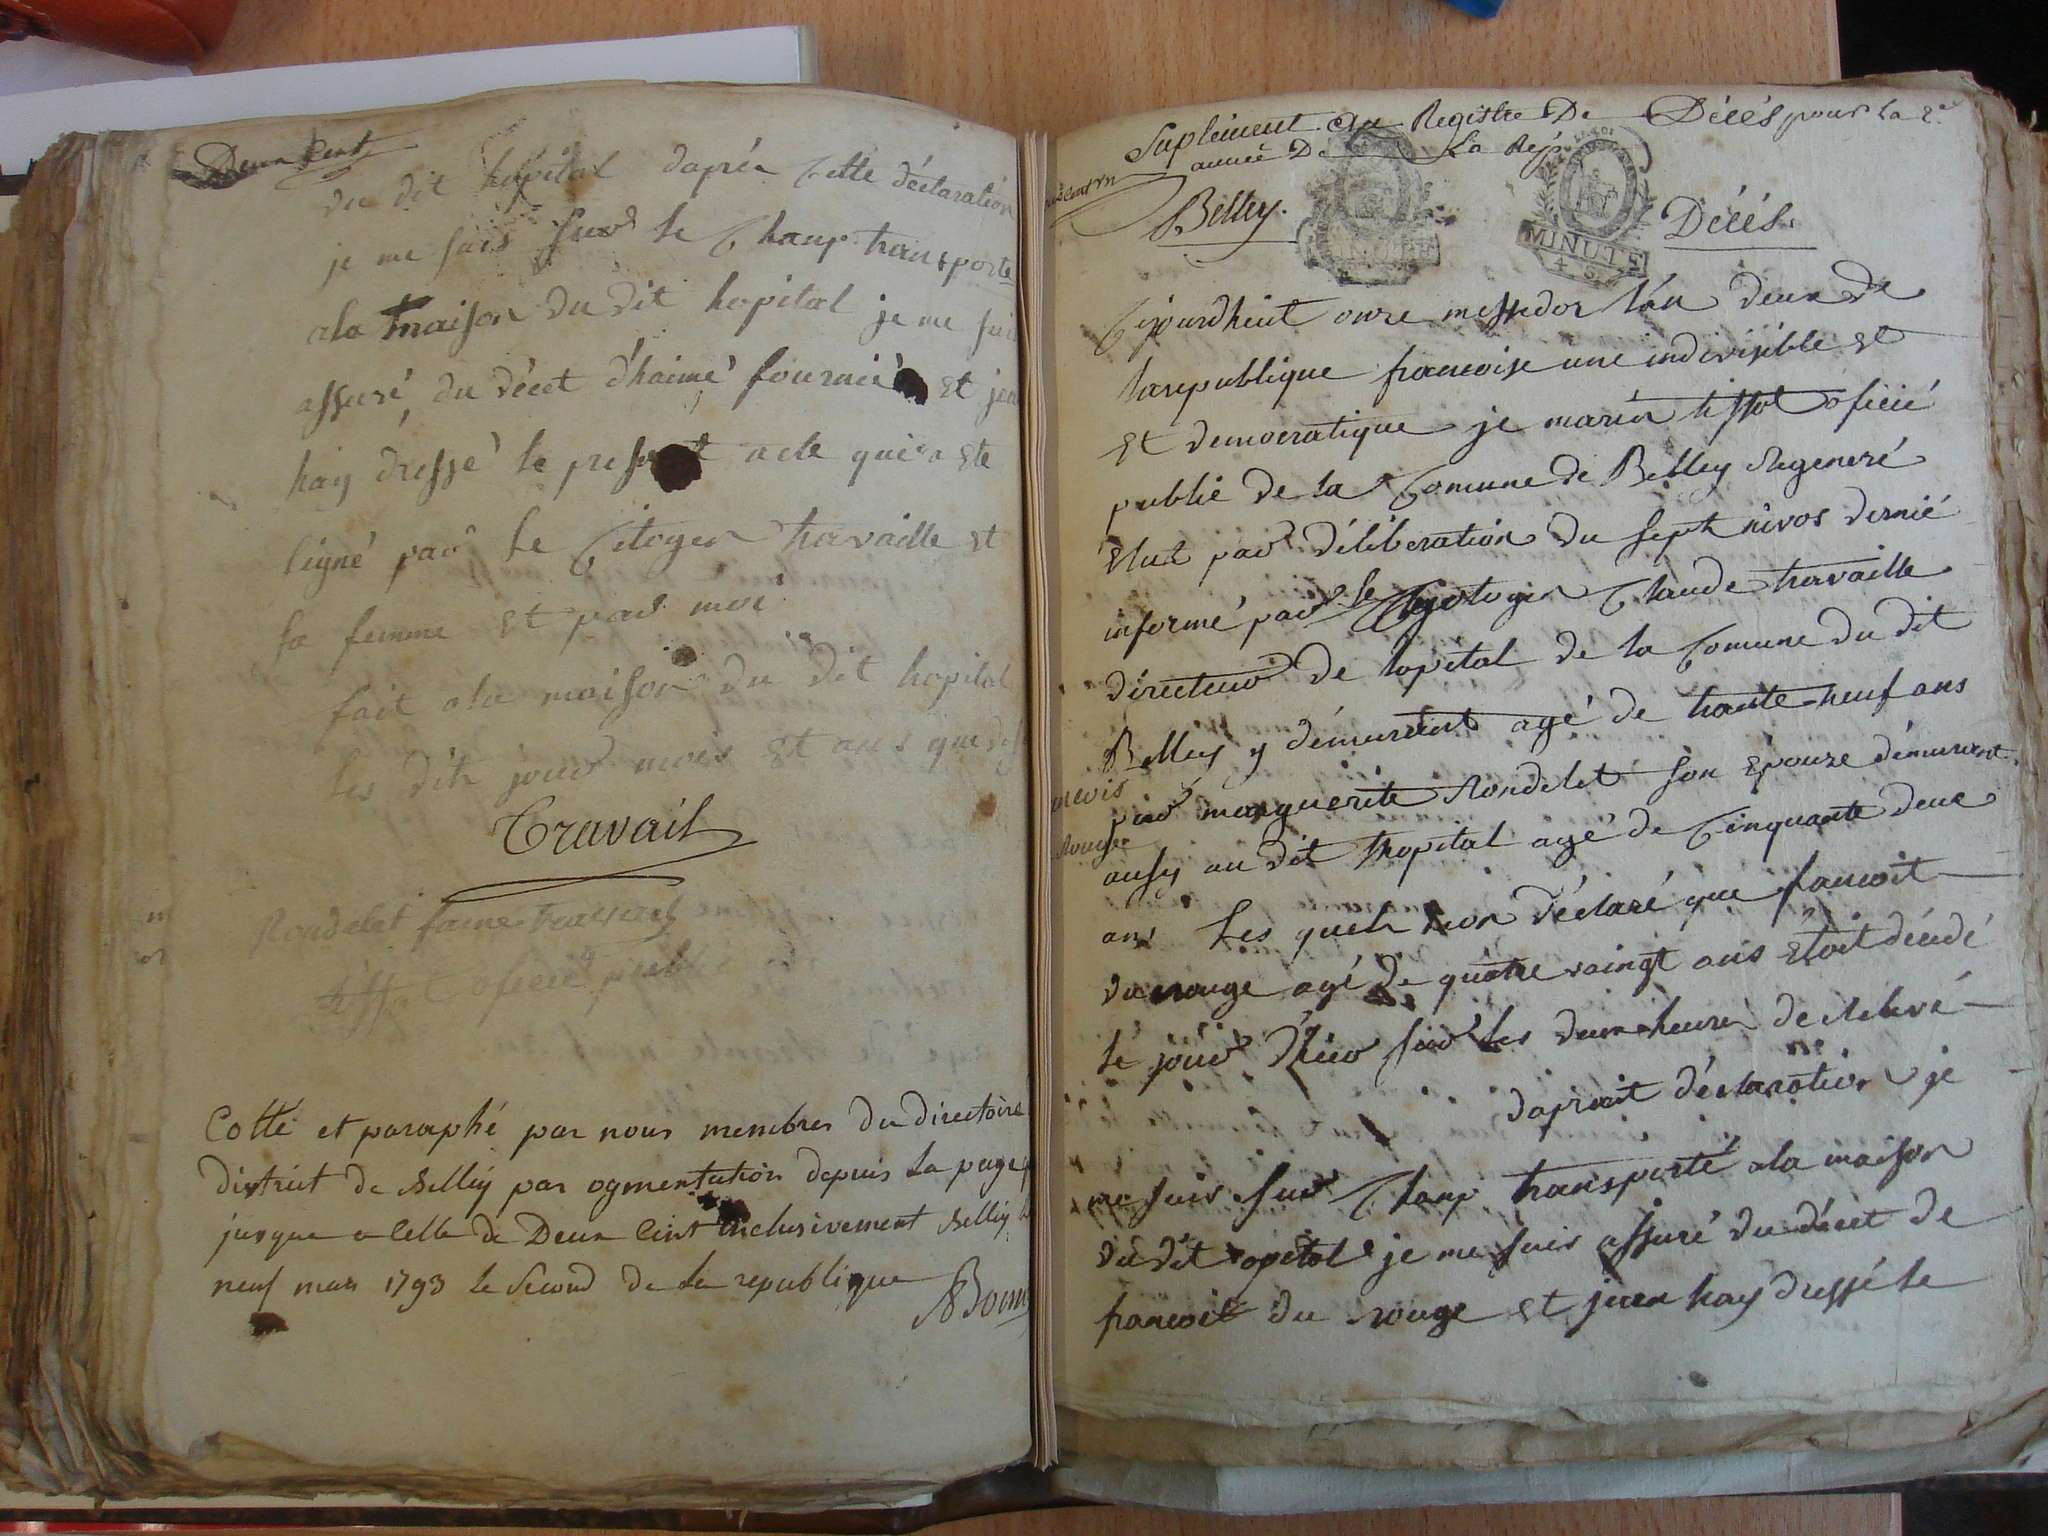 Deux Cent
du dit hopital daprés Cette déclaration
je me suis sur le Champ transporte
ala maison du dit hopital je me sui
assuré du décet d'haimé fournié et jen
hay dressé le present acte qui a ete
signé par le Citoyen travaille et
sa femme et par moi
fait ala maison du dit hopital
les dits jour mois et ans que
Travail
Rondelet fame travail
tissot oficié public
Cotté et paraphé par nous membres du directoire
district de Belley par ogmentation depuis la page
jusque a Celle de Deux Cent inclusivement Belley le
neuf mars 1793 le Second de la republique
Suplément Au Registre De Décés pour la 2e
année De La Rép
Belley. Décés.
MINUTE
4 S
Cejourdheuit onze messidor lan deux de
larepublique francoise une indivisible et
et democratique je marin tissot oficié
publié de la Comune de Belley Regeneré
elut par déliberation du sept nivos dernié
informé par le Cytoyen Claude travaille
directeur de lopital de la Comune du dit
Belley y démurant agé de trante neuf ans
par marguerite Rondelet son epouze démurant
ausy au dit hopital agé de Cinquante deux
Rouge
ans les quels mon déclaré que fancoit
du rouge agé de quatre vaingt ans etoit décédé
le jour d'hier sur les deux heures de relevé
daprait déclaration je
me suis sur Champ transporté ala maison
du dit opital je me suis assuré du décet de
francoit du rouge et jeen hay dressé le